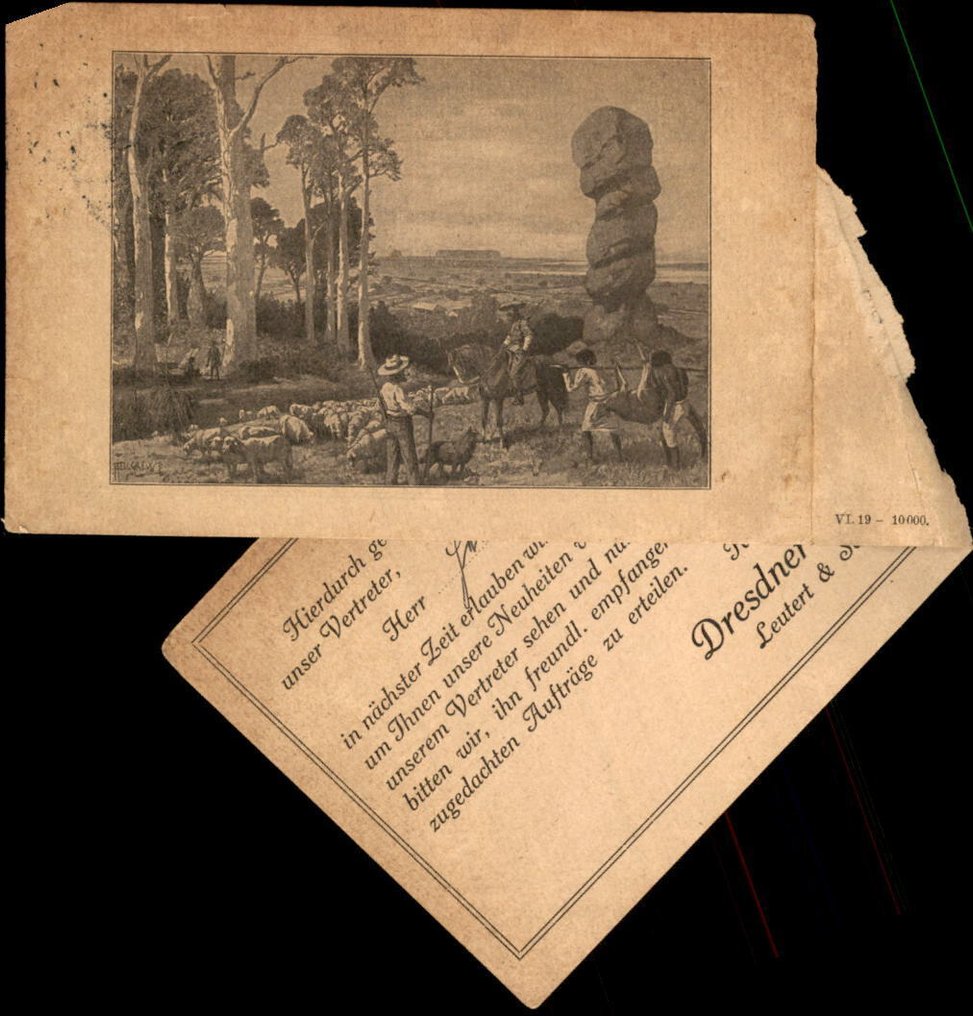 VI. 19 – 10000.
Hierdurch ge
unser Vertreter,
Herr
in nächster Zeit erlauben wi
um Ihnen unsere Neuheiten
unserem Vertreter sehen und na
bitten wir, ihn freundl. empfange
zugedachten Aufträge zu erteilen.
Dresdner
Leutert & S